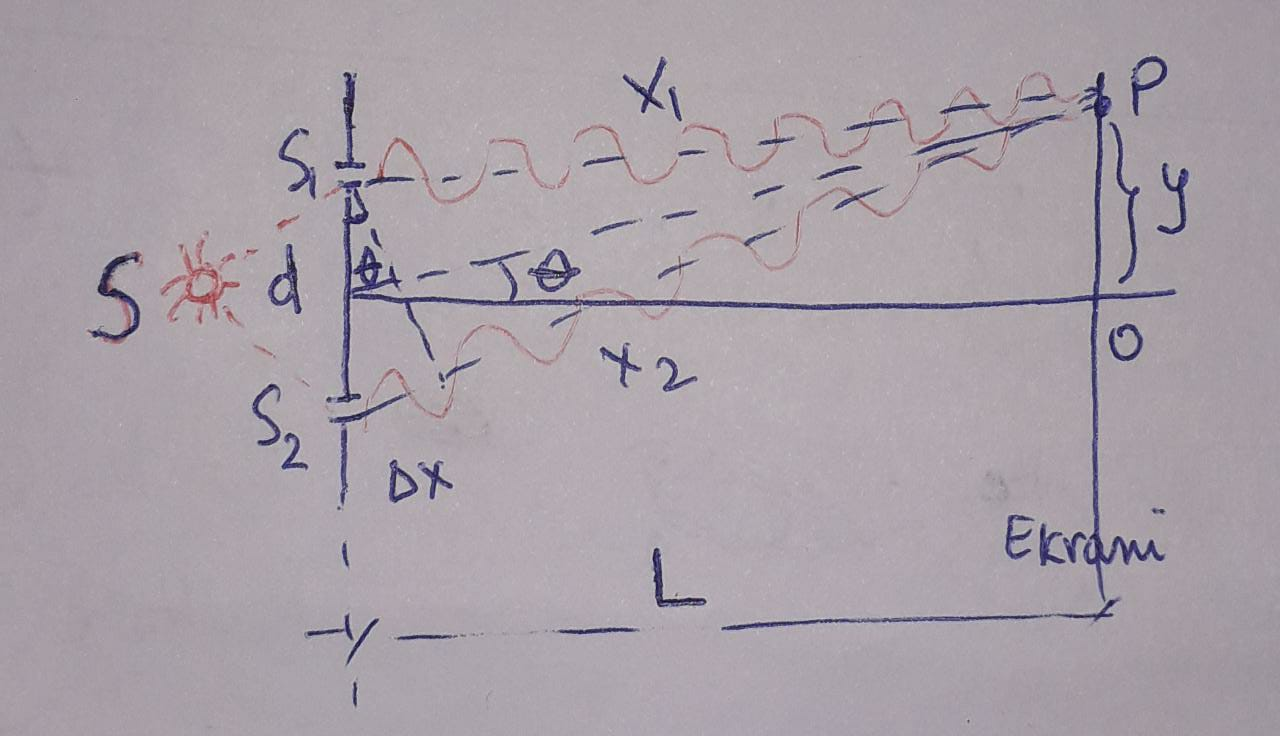 X₁
P
S₁
y
S
d
θ₁
θ
O
X₂
S₂
ΔX
Ekrani
L